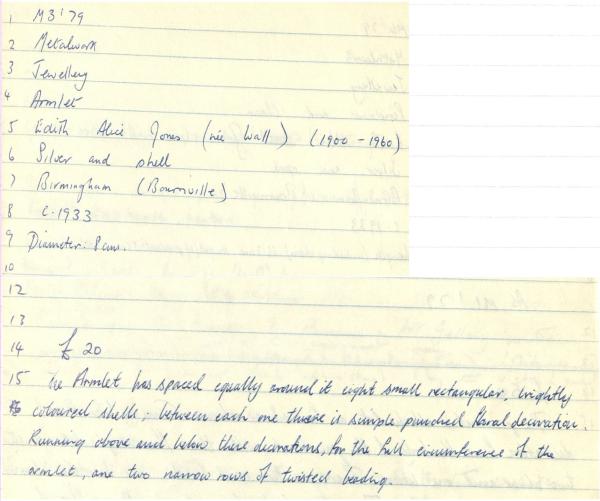 1 M3'79
2 Metalwork
3 Jewellery
4 Armlet
5 Edith Alice Jones (née Wall) (1900 - 1960)
6 Silver and shell
7 Birmingham (Bournville)
8 c.1933
9 Diameter: 8cm.
10
12
13
14 £20
15 The Armlet has spaced equally around it eight small rectangular, brightly
coloured shells; between each one there is simple punched floral decoration.
Running above and below these decorations, for the full circumference of the
armlet, are two narrow rows of twisted beading.